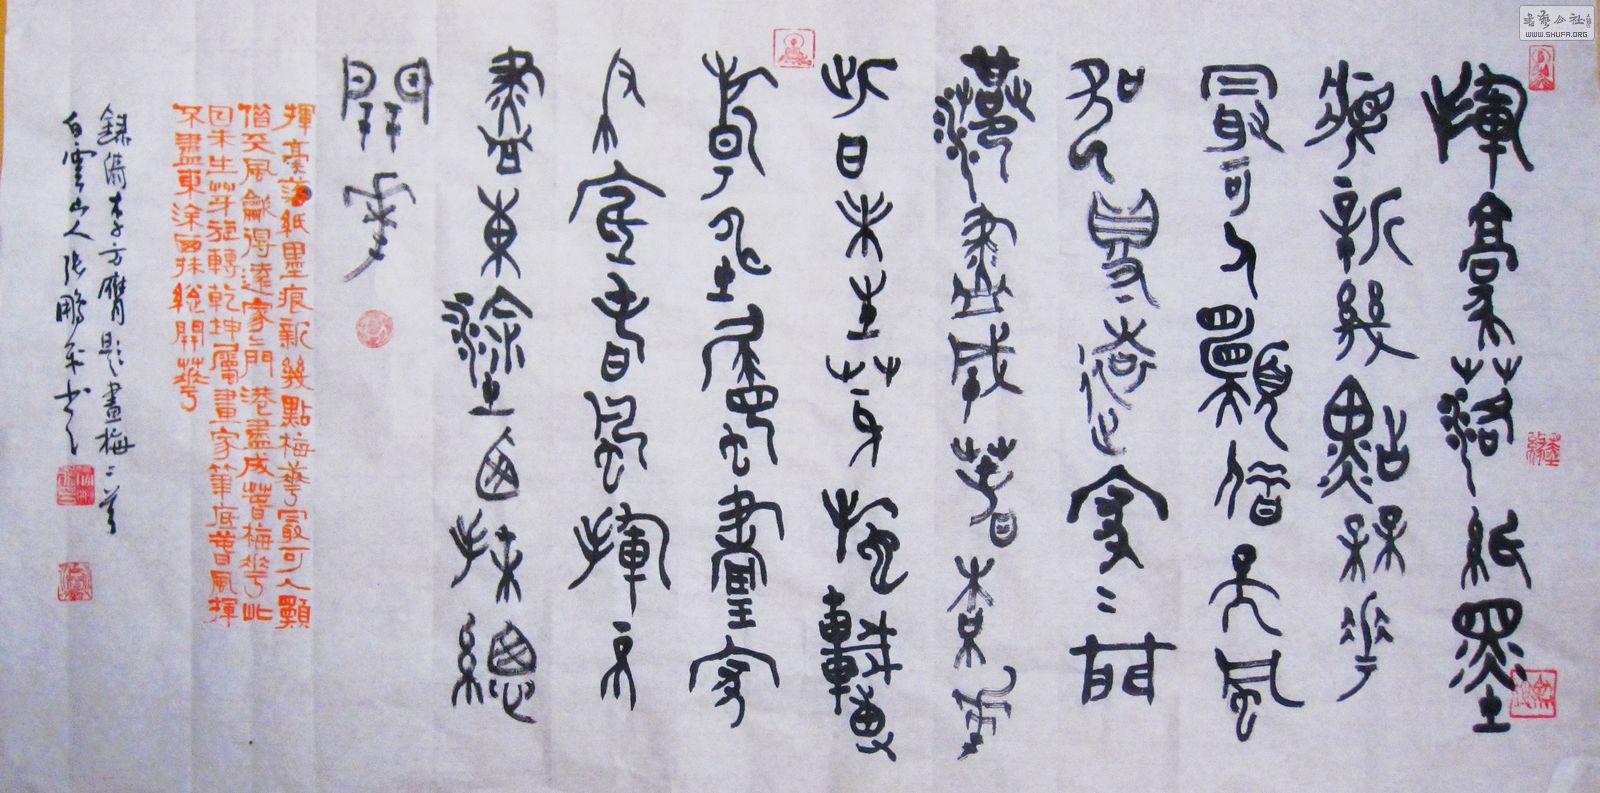 書藝公社
WWW.SHUFA.ORG
揮毫落紙墨
痕新幾點梅花
最可人願借天風
吹得遠家家門
巷盡成春梅花
此日未生芽旋轉
乾坤屬畫家
筆底春風揮不
盡東塗西抹總
開花
揮毫落紙墨痕新幾點梅華最可人願
借天風龡得遠家家門港盡成萅梅華此
日未生芽旋轉乾坤屬畫家筆底萅風揮
不盡東涂西抹總開華
錄清李方膺題畫梅二首
白雲山人張鵬平書